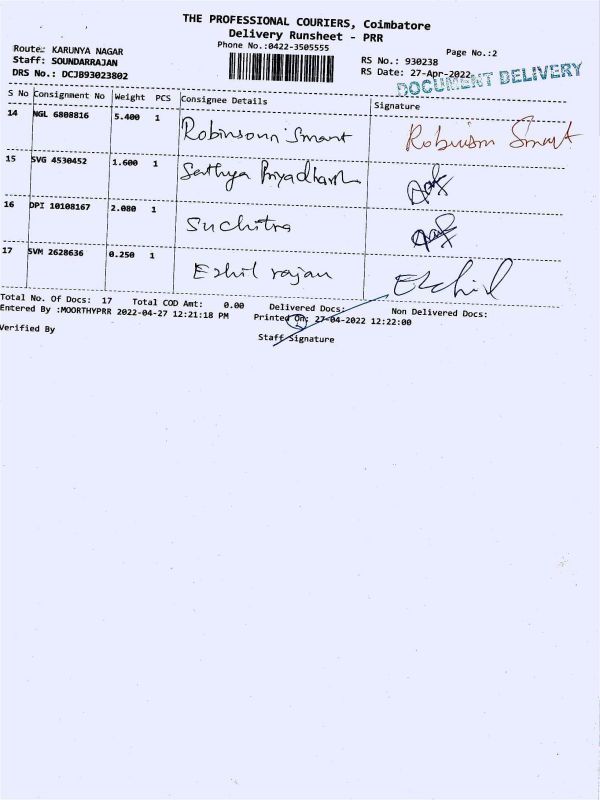 THE PROFESSIONAL COURIERS, Coimbatore
Delivery Runsheet - PRR
Phone No.:0422-3505555
Page No.:2
Route: KARUNYA NAGAR
RS No.: 930238
Staff: SOUNDARRAJAN
RS Date: 27-Apr-2022
DRS No.: DCJB93023802
DOCUMENT DELIVERY
S No Consignment No Weight PCS Consignee Details Signature
14 NGL 6808816 5.400 1 Robinsoun Smart Robinson Smart
15 SVG 4530452 1.600 1 Sathya Priyadharsh
16 DPI 10108167 2.080 1 Suchitra
17 SVM 2628636 0.250 1 Ezhil rajan Ezhil
Total No. Of Docs: 17 Total COD Amt: 0.00 Delivered Docs: Non Delivered Docs:
Entered By :MOORTHYPRR 2022-04-27 12:21:18 PM Printed On: 27-04-2022 12:22:00
Verified By
Staff Signature